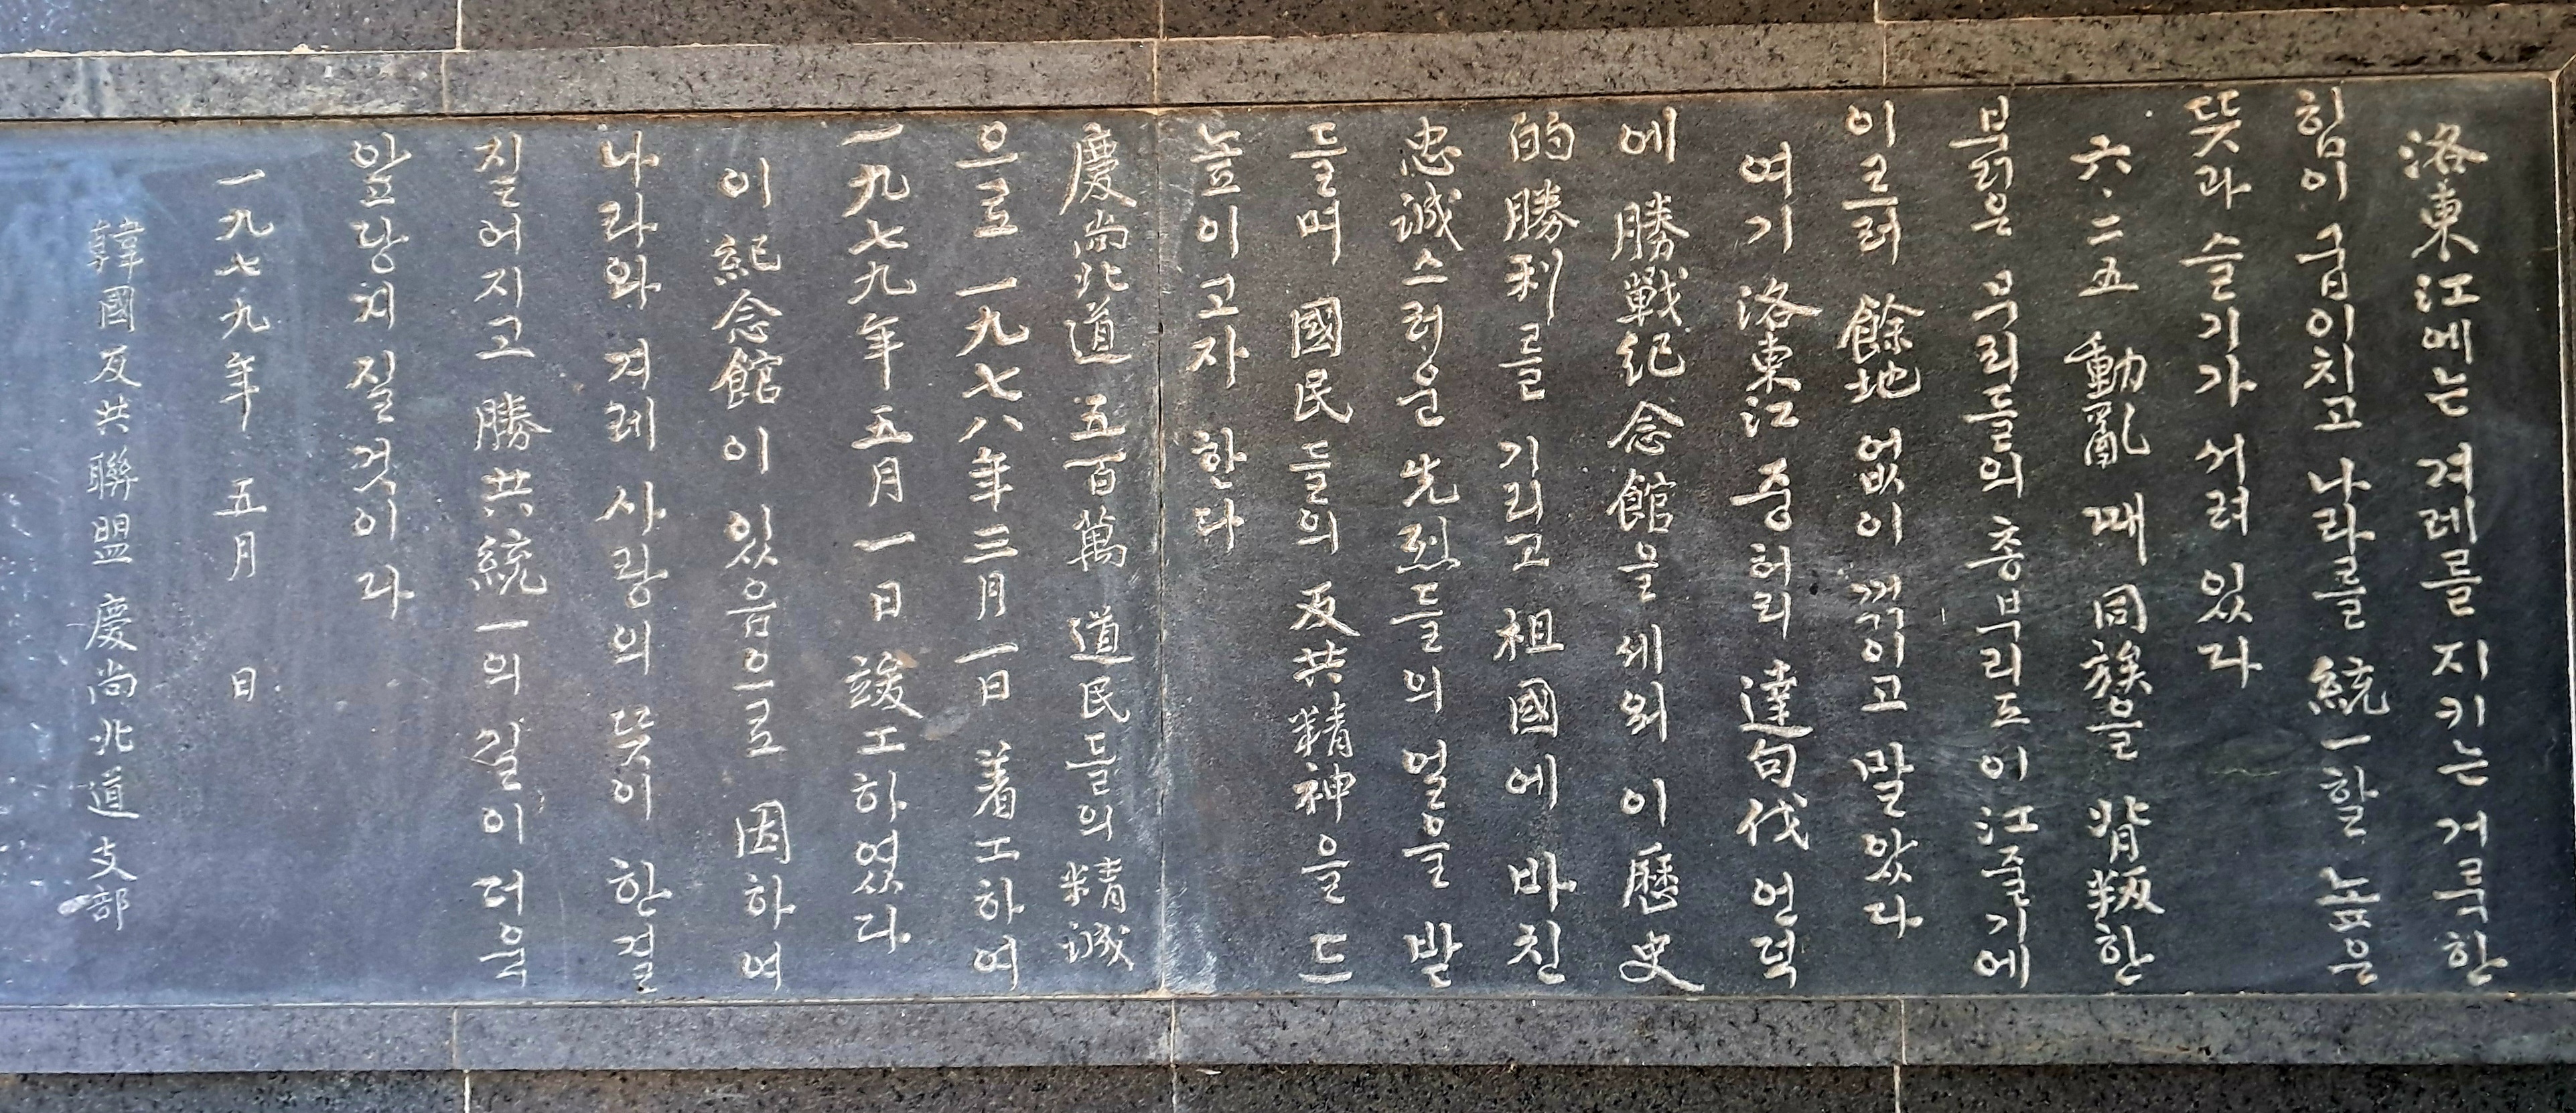 洛東江에는 겨레를 지키는 거룩한
힘이 굽이치고 나라를 統一할 높은
뜻과 슬기가 서려 있다
六·二五 動亂 때 同族을 背叛한
붉은 무리들의 총부리도 이 江줄기에
이르러 餘地 없이 꺾이고 말았다
여기 洛東江 중허리 達句伐 언덕
에 勝戰紀念館을 세워 이 歷史
的 勝利를 기리고 祖國에 바친
忠誠스러운 先烈들의 얼을 받
들며 國民들의 反共精神을 드
높이고자 한다
慶尙北道 五百萬 道民들의 精誠
으로 一九七八年 三月 一日 着工하여
一九七九年 五月 一日 竣工하였다
이 紀念館이 있음으로 因하여
나라와 겨레 사랑의 뜻이 한결
짙어지고 勝共統一의 길이 더욱
앞당겨질것이다
一九七九年 五月 日
韓國反共聯盟 慶尙北道支部